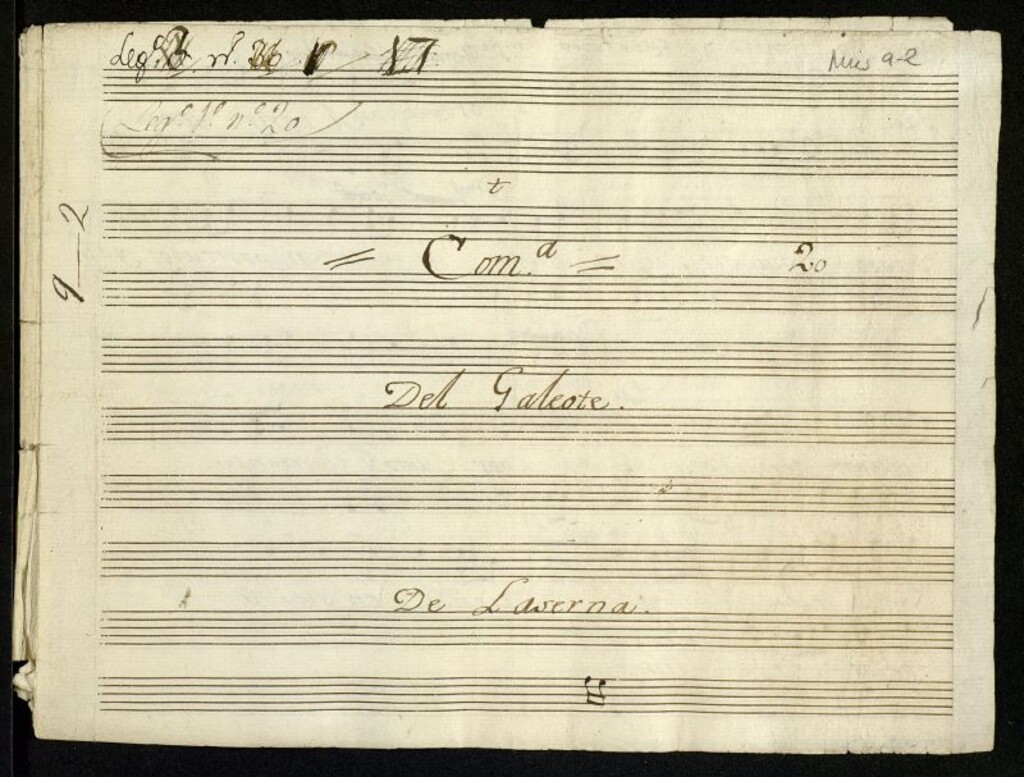 Leg.º nº. 36 17
Mus 9-2
Legº. 1º. nº. 20
9-2
t
= Com.ª = 20
Del Galeote.
De Laserna.